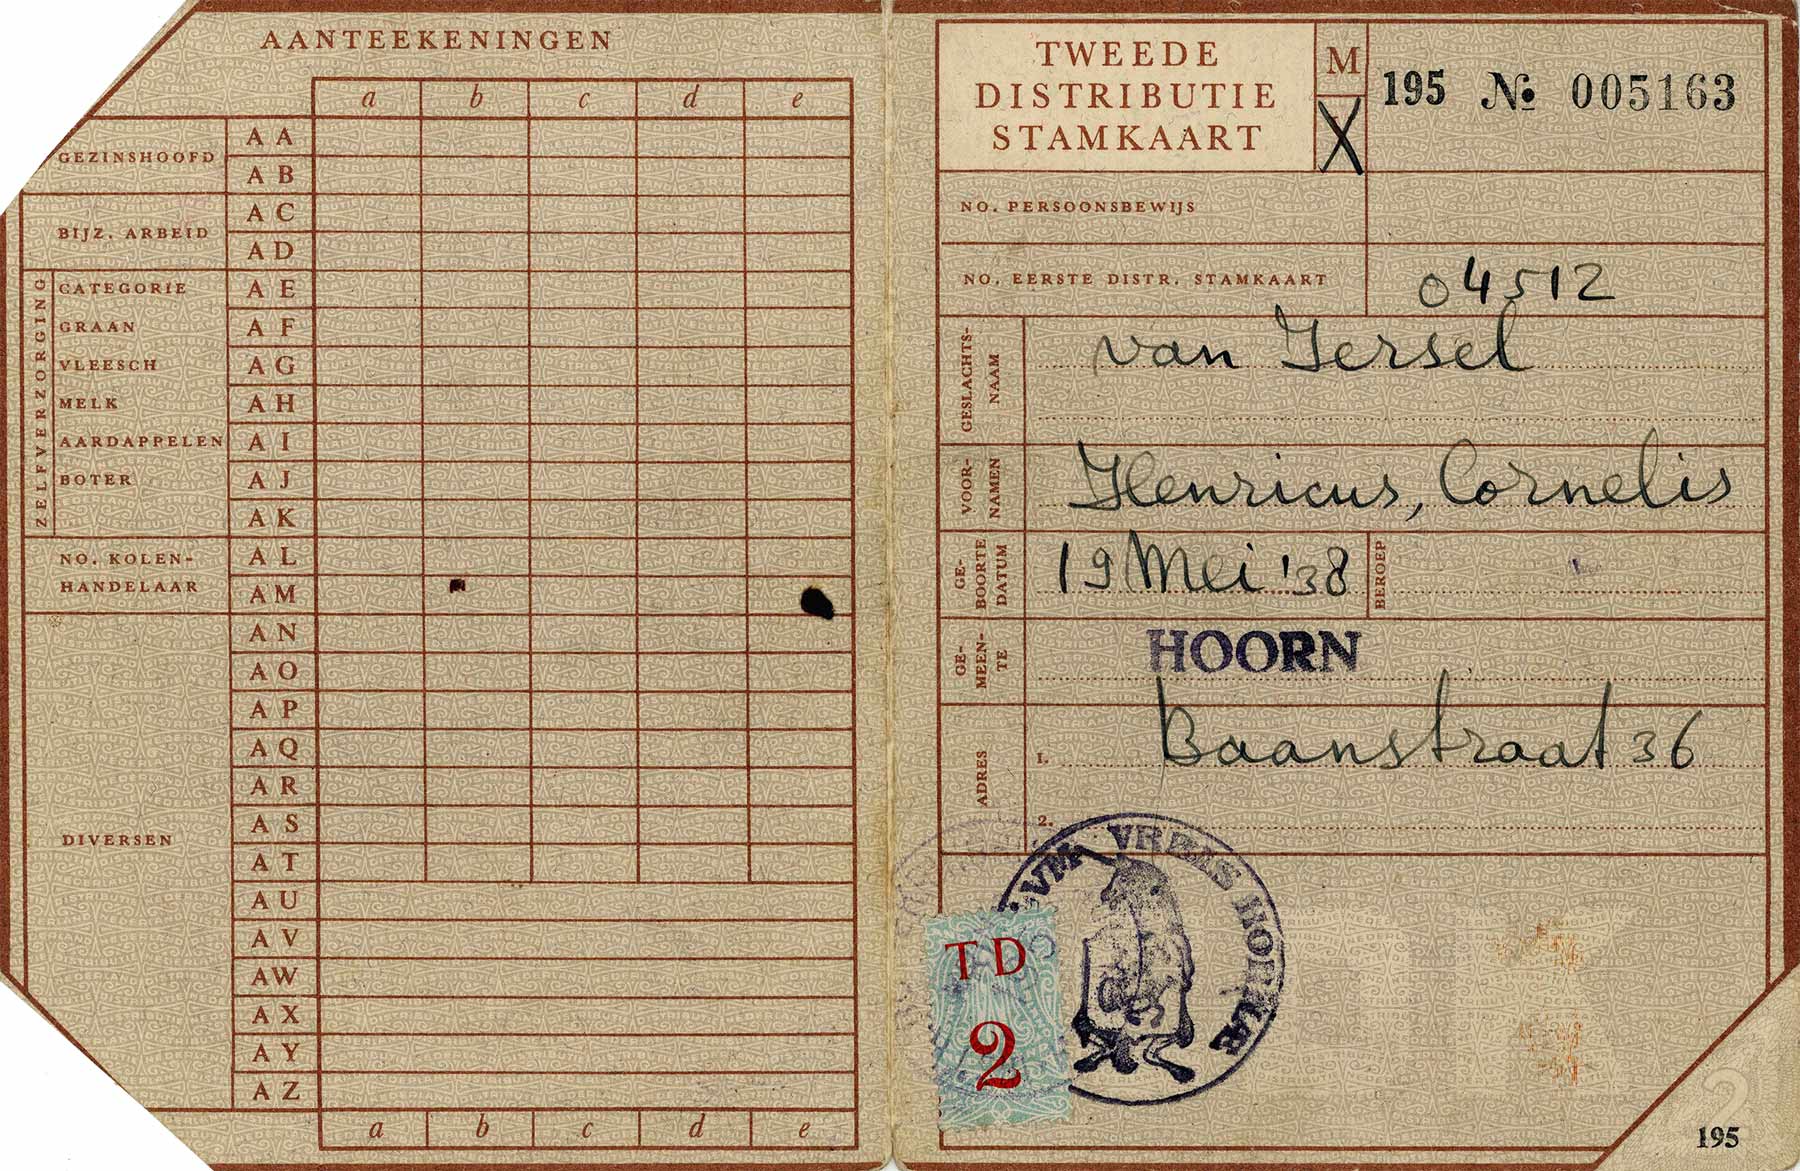 AANTEEKENINGEN
a b c d e
GEZINSHOOFD
A A
A B
BIJZ. ARBEID
A C
A D
ZELFVERZORGING
CATEGORIE A E
GRAAN A F
VLEESCH A G
MELK A H
AARDAPPELEN A I
BOTER A J
A K
NO. KOLEN-
HANDELAAR
A L
A M
DIVERSEN
A N
A O
A P
A Q
A R
A S
A T
A U
A V
AW
A X
A Y
A Z
a b c d e
TWEEDE
DISTRIBUTIE
STAMKAART
M
195 № 005163
NO. PERSOONSBEWIJS
NO. EERSTE DISTR. STAMKAART 04512
GESLACHTS-
NAAM
van Iersel
VOOR-
NAMEN
Henricus, Cornelis
GE-
BOORTE
DATUM
19 Mei '38
BEROEP
GE-
MEEN-
TE
HOORN
ADRES
1. Baanstraat 36
2.
T D
2
195